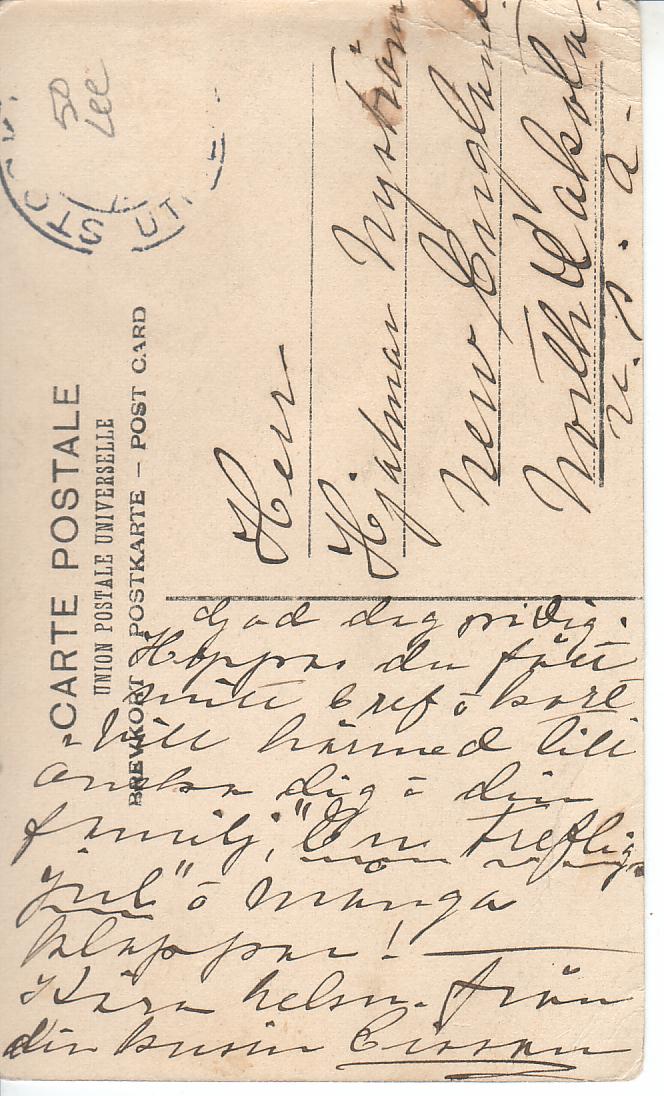 50
CARTE POSTALE
UNION POSTALE UNIVERSELLE
BREVKORT POSTKARTE – POST CARD
STO
UT.
Herr
Hjalmar Nyström
New England.
North Dakota.
U. S. A.
God dag på dig.
Hoppas du fått
mitt bref o kort
Vill härmed till
önska dig o din
familj, "En Treflig
jul" o många
klappar!
Kära helsn. från
din kusin